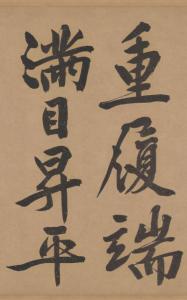 重履端
滿目昇平